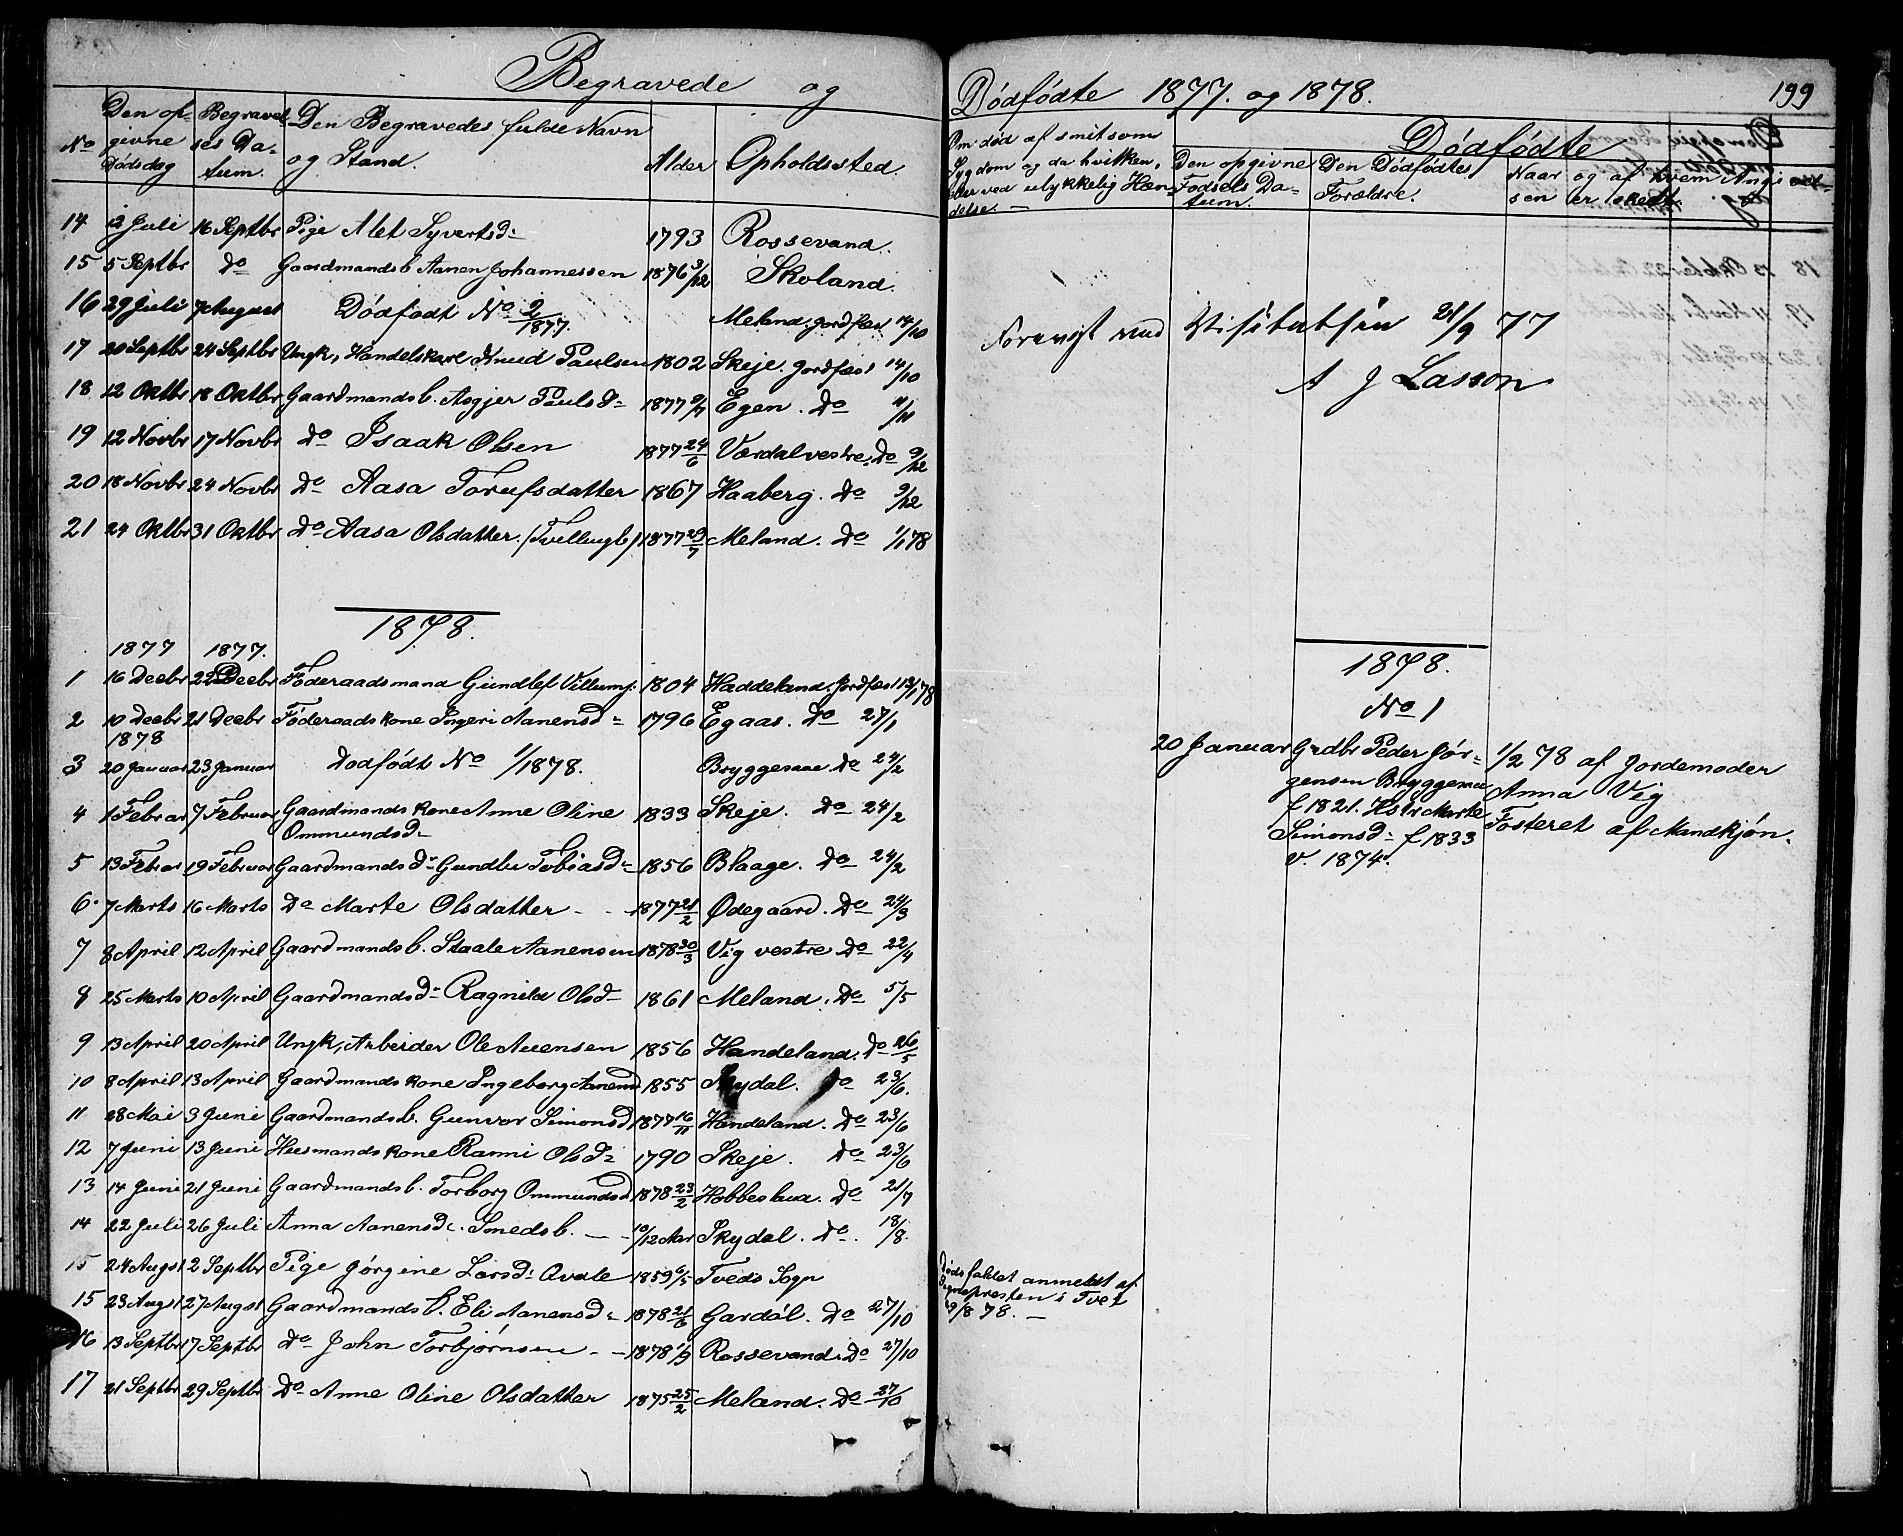 Begravede og
No
Den opgivne Dødsdag
Begravelses Datum.
Den Begravedes fulde Navn og Stand.
Alder
Opholdssted.
14 12 Juli 16 Septbr Pige Alet Syvertsd: 1793 Rossevand.
15 5 Septbr Do Gaardmands b. Aanen Johannessen 1876 3/12 Skoland.
16 29 Juli 7 August Dødfødt No 2/1877. Meland. Jordfæst 14/10
17 20 Septbr 24 Septbr Ungk, Handelskarl Knud Paulsen 1802 Skeje. Jordfæst 14/10
18 12 Oktbr 18 Oktbr Gaardmands b. Asgjer Pauls D: 1877 Egen. Do 11/11
19 12 Novbr 17 Novbr Do Isaak Olsen 1877 24/6 Værdal vestre. Do 9/12
20 18 Novbr 24 Novbr Do Aasa Torufsdatter 1867 Haaberg. Do 9/12
21 24 Oktbr 31 Oktbr Do Aasa Olsdatter. (Tvellingb) 1877 29/7 Meland. Do 1/1 78
1878.
1877 1877.
1 16 Decbr 22 Decbr Føderaadsmand Gundlef Villums: 1804 Haddeland. Jordfæst 78
2 10 Decbr 21 Decbr Føderaadskone Ingeri Aanensd: 1796 Egaas. Do 27/1
1878
3 20 Januar 23 Januar Dødfødt No 1/1878. Bryggesaae Do 24/2
4 1 Februar 7 Februar Gaardmands kone Anne Oline 1833 Skeje. Do 24/2
Ommundsd:
5 13 Februar 19 Februar Gaardmands D: Gundbu Tobiasd: 1856 Blaage. Do 24/2
6. 7 Marts 16 Marts Do Marte Olsdatter - - 1877 21/2 Ødegaard. Do 24/3
7 8 April 12 April Gaardmands b. Staale Aanensen 1878 30/3 Vig vestre Do 22/4
8 25 Marts 10 April Gaardmandsd: Ragnild Olsd: 1861 Meland. Do 5/5
9 13 April 20 April Ungk, Arbeider Ole Auensen 1856 Handeland. Do 26/5
10 8 April 13 April Gaardmands kone Ingeborg Aanensd 1855 Skydal. Do 23/6.
11 28 Mai 3 Juni Gaardmands b. Gunvor Simonsd 1877 16/11 Handeland. Do 23/6
12 7 Juni 13 Juni Huusmands kone Ranni Olsd: 1790 Skeje. Do 23/6
13 14 Juni 21 Juni Gaardmands b. Torborg Ommundsd 1878 23/2 Hobbeshua. Do 21/7
14 22 Juli 26 Juli Anna Aanensd: Smeds b. - - 10/12 Aar Skydal. Do. 18/8.
15 24 Augst 2 Septbr Pige Jørgine Larsd: Ovale 1859 6/5 Tveds Sogn
15 23 Augst 27 Augst Gaardmands b. Eli Aanensd: 1878 21/6 Gardøl. Do 27/10
16 13 Septbr 17 Septbr Do John Torbjørnsen - - 1878 Rossevand. Do 27/10
17 21 Septbr 29 Septbr Do Anne Oline Olsdatter 1875 25/2 Meland. Do 27/10
Dødfødte 1877. og 1878. 199
Om død af smitsom
Sygdom og da hvilken,
eller ved ulykkelig Hæn-
delse. -
Dødfødte
Den opgivne Fødsels Datum.
Den Dødfødtes Forældre.
Naar og af hvem Angivelsen er skeet.
Forevist ved Visitatsen 21/9 77
A J Lasson
1878.
No 1
20 Januar
Grdbr Peder Jør-
gensen Bryggesaae
f 1821. Hstr Marte
Simonsd: f 1833
v. 1874.
1/2 78 af Jordemoder
Anna Vig
Fosteret af Mandkjøn.
Dødsfaldet anmeldt af
Sognepresten i Tvet
29/8 78. -